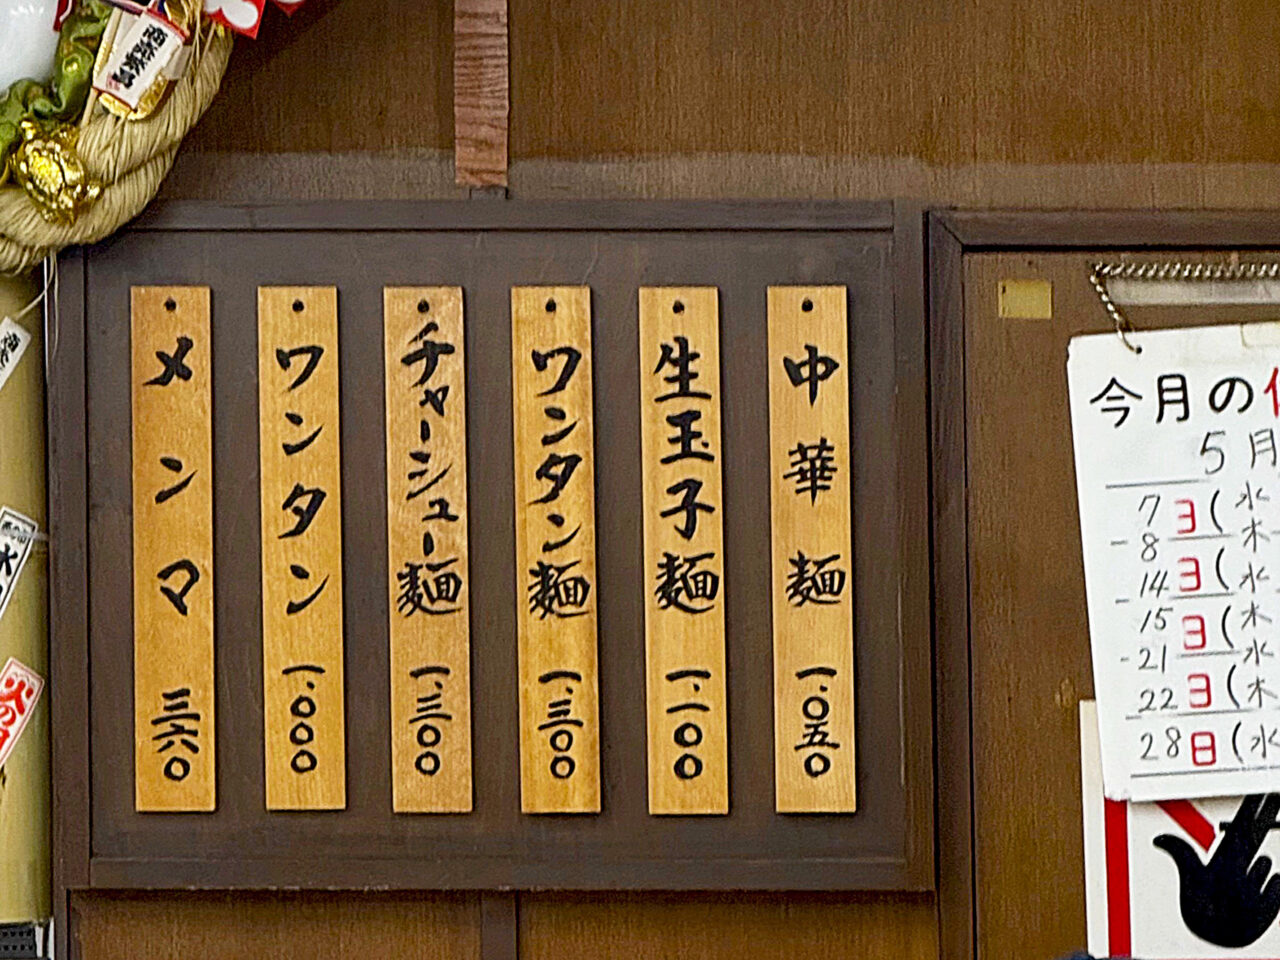 中華麺 一、〇五〇
生玉子麺 一、一〇〇
ワンタン麺 一、三〇〇
チャーシュー麺 一、三〇〇
ワンタン 一、〇〇〇
メンマ 三六〇
今月の
5月
7日(水
8日(木
14日(水
15日(木
21日(水
22日(木
28日(水